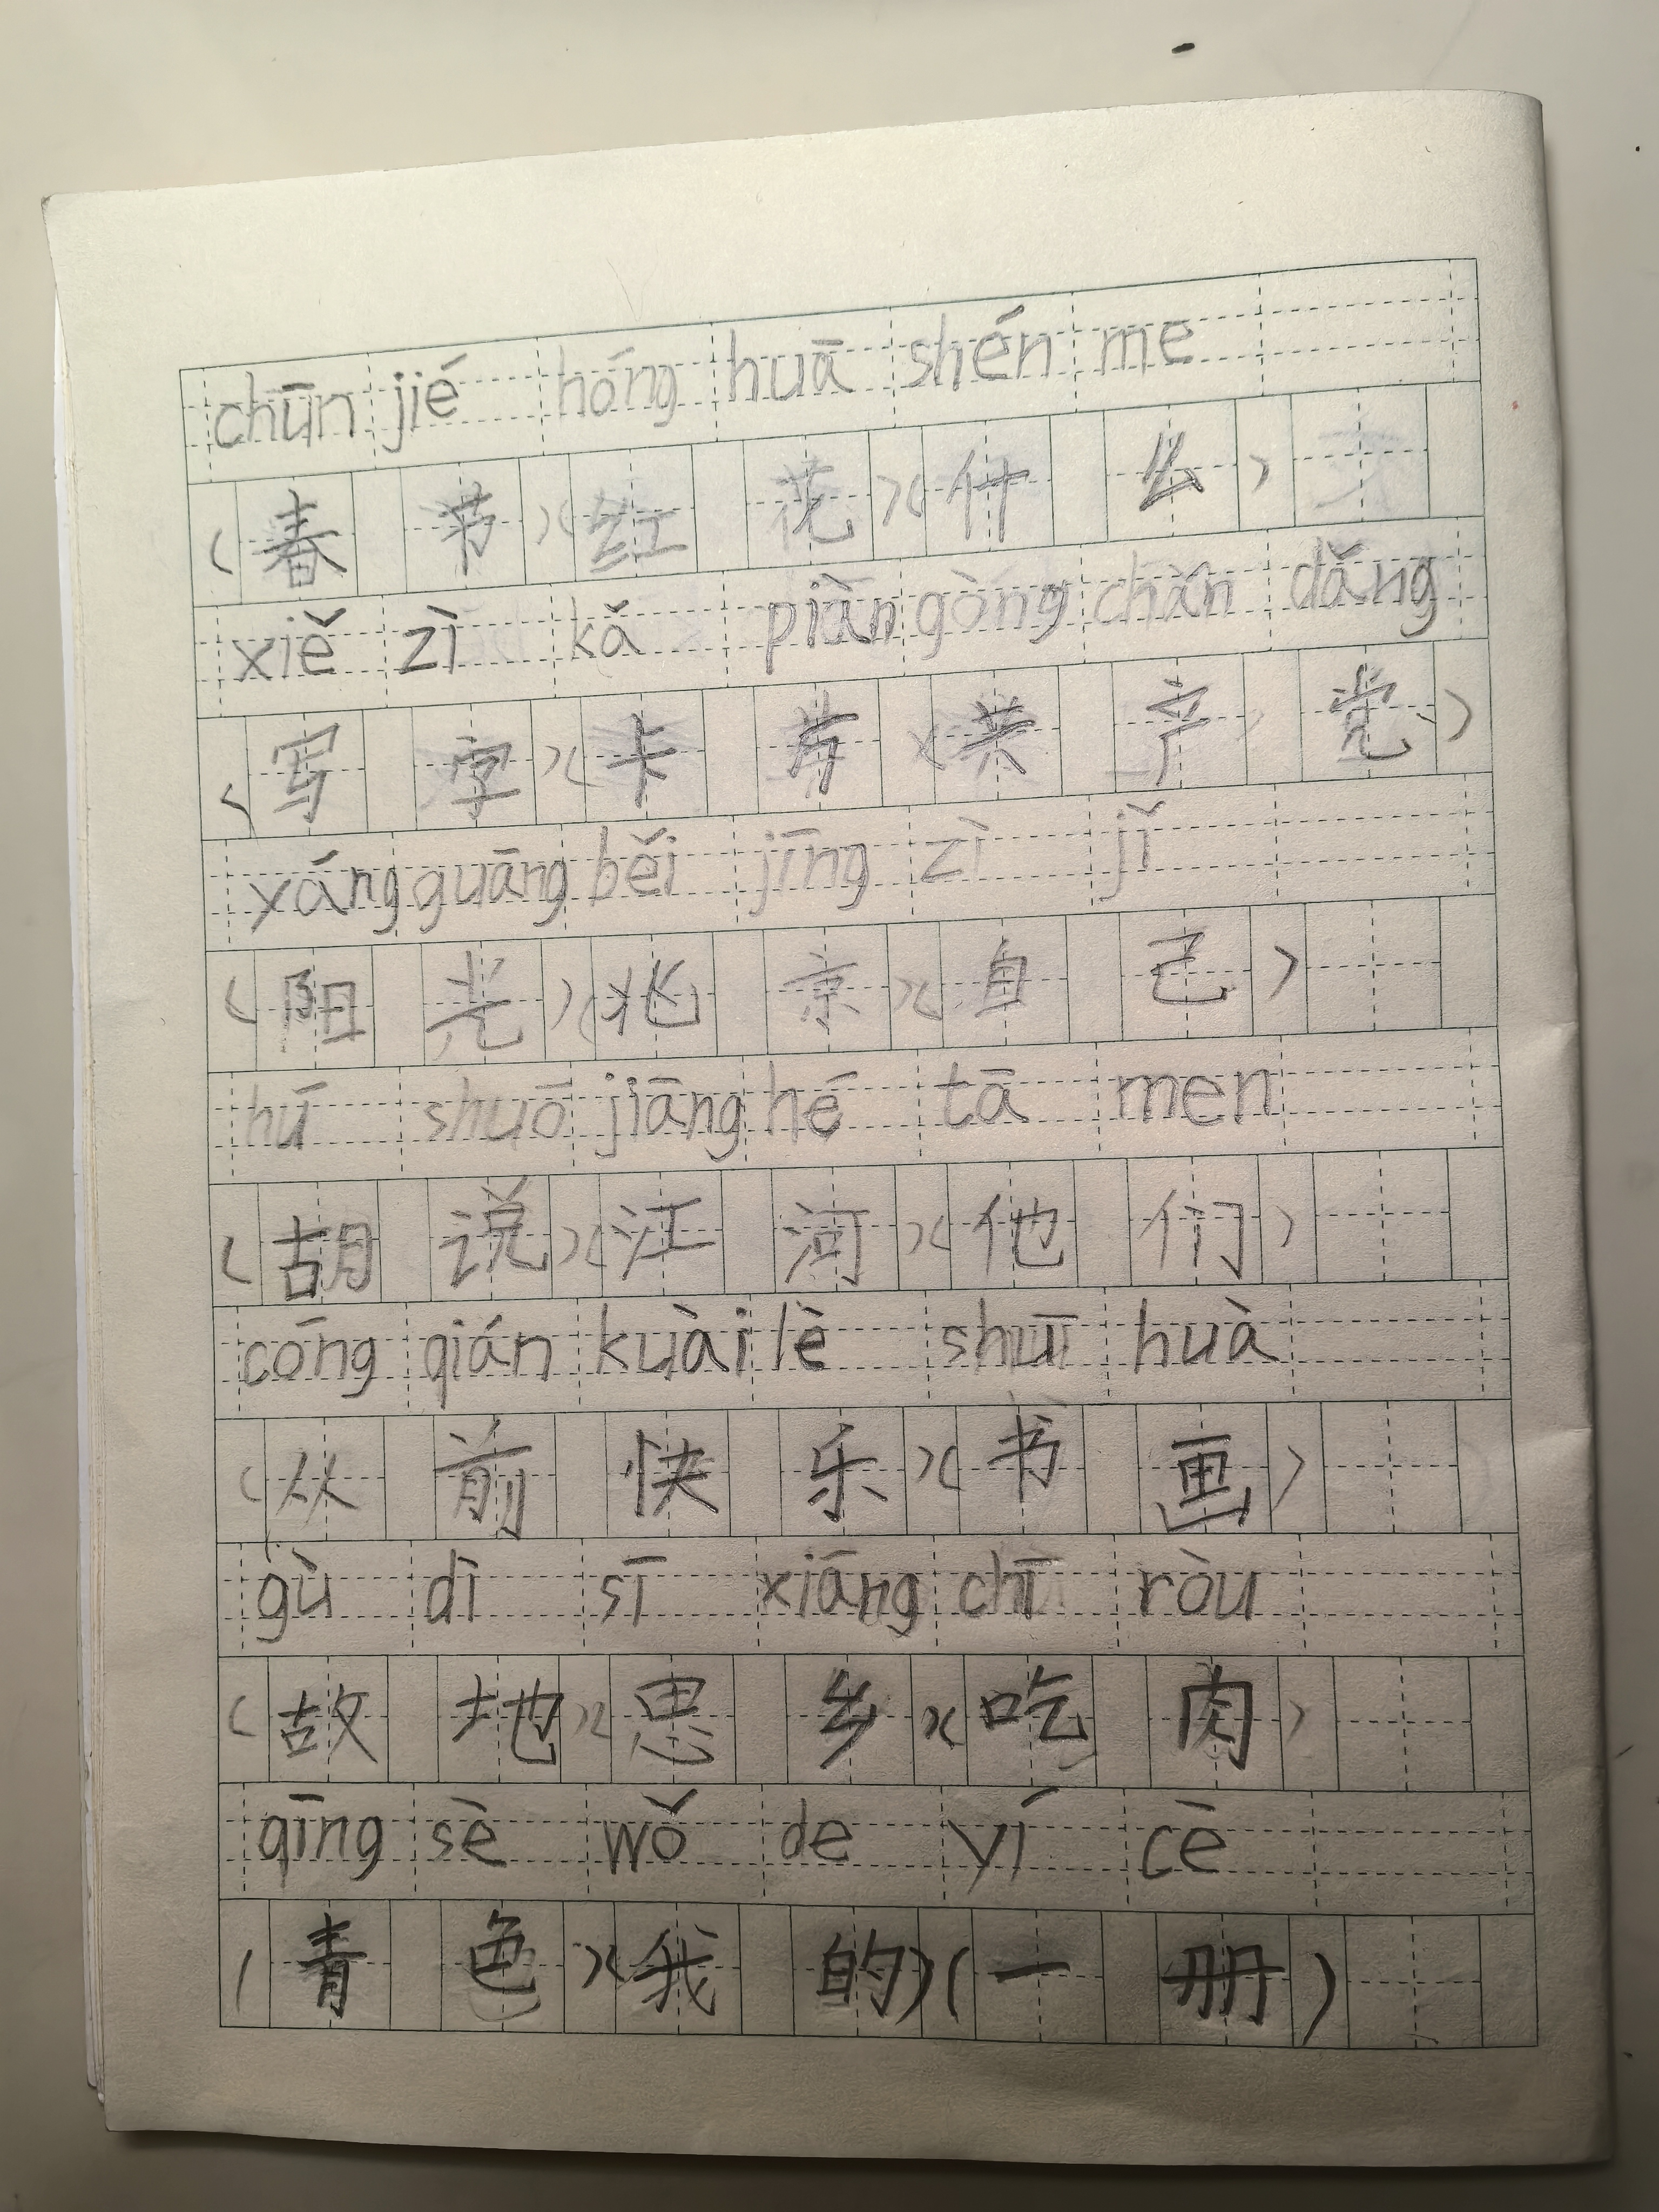 chūn jié hóng huā shén me
(春节)(红花)(什么)
xiě zì kǎ piàn gòng chǎn dǎng
(写字)(卡 (共产党)
yáng guāng běi jīng zì jǐ
(阳光)(北京)(自己)
hú shuō jiāng hé tā men
(胡说)(江河)(他们)
cóng qián kuài lè shū huà
(从前 快乐)(书画)
gù dì sī xiāng chī ròu
(故地)(思乡)(吃肉)
qīng sè wǒ de yí cè
(青色)(我的)(一册)